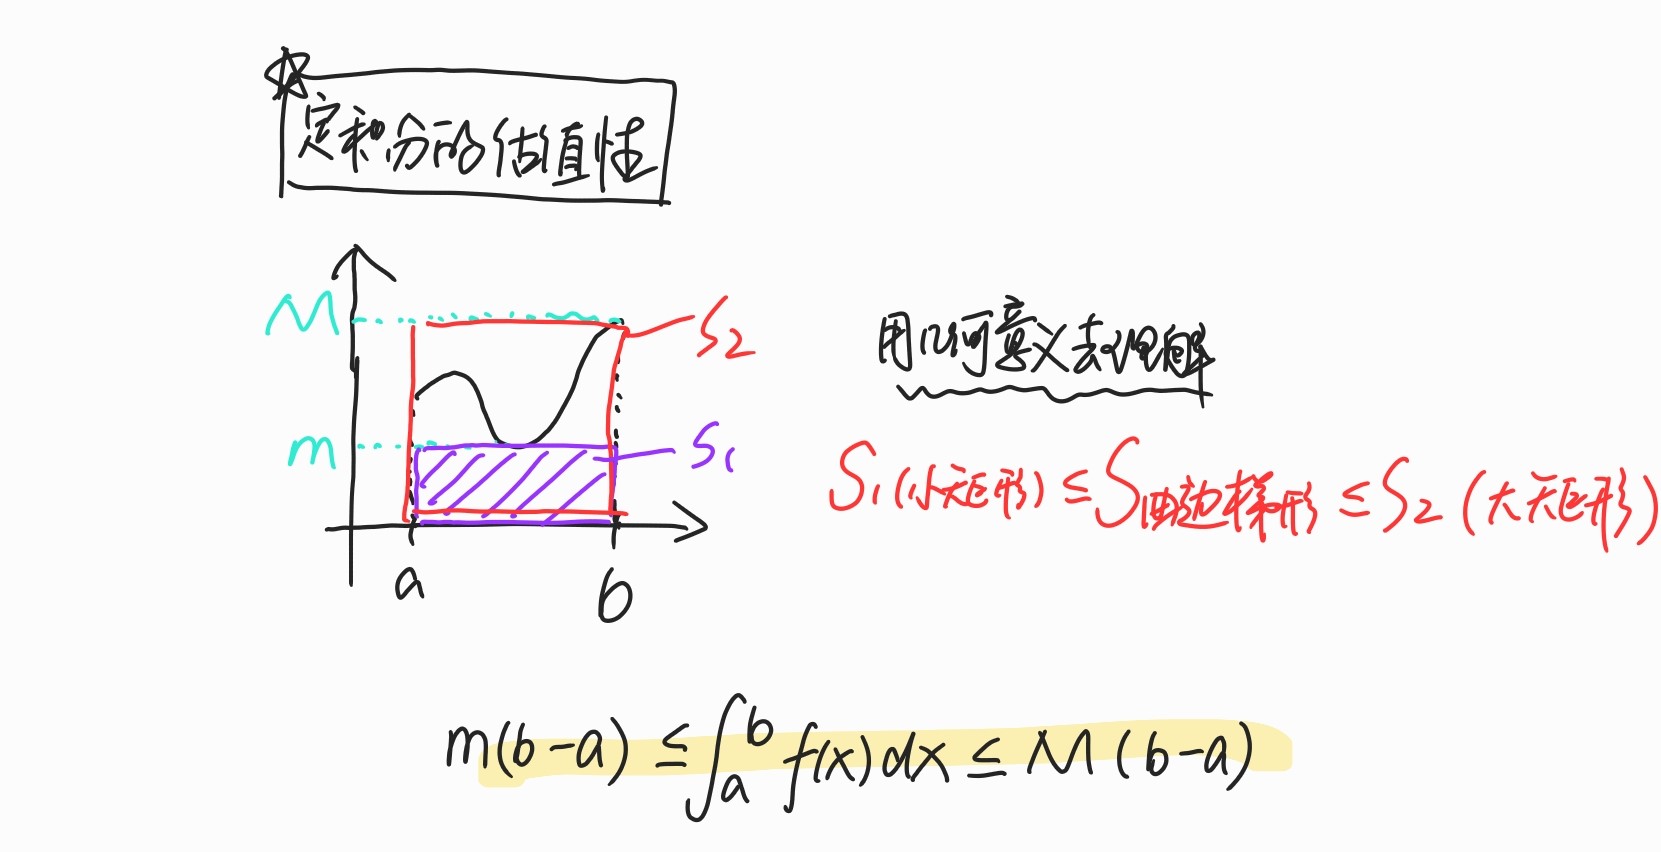 定积分的估值性
M
S2
用几何意义去理解
m
S1
S1(小矩形) ≤ S曲边梯形 ≤ S2 (大矩形)
a b
m(b-a) ≤ ∫_a^b f(x)dx ≤ M(b-a)